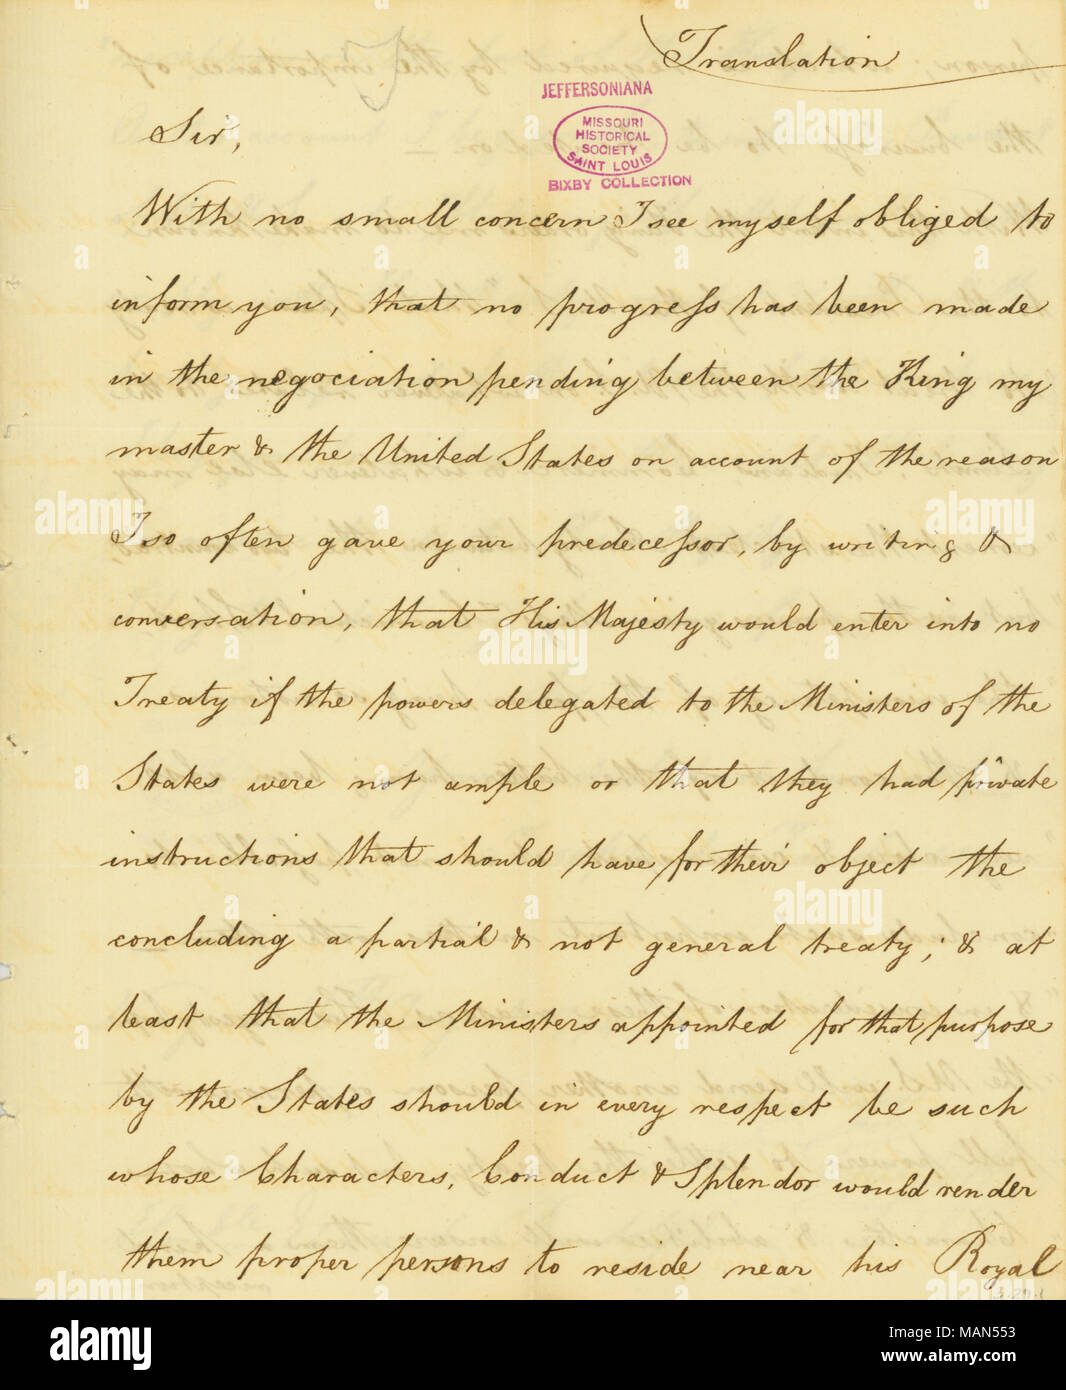 Translation
JEFFERSONIANA
MISSOURI
HISTORICAL
SOCIETY
SAINT LOUIS
BIXBY COLLECTION
Sir,
With no small concern I see myself obliged to
inform you, that no progreſs has been made
in the negociation pending between the King my
master & the United States on account of the reason
I so often gave your predeceſsor, by writing &
conversation, that His Majesty would enter into no
Treaty if the powers delegated to the Ministers of the
States were not ample or that they had private
instructions that should have for their object the
concluding a partial & not general treaty; & at
least that the Ministers appointed for that purpose
by the States should in every respect be such
whose Characters, Conduct & Splendor would render
them proper persons to reside near his Royal
alamy stock photo
alamy
Image ID: MAN553
www.alamy.com